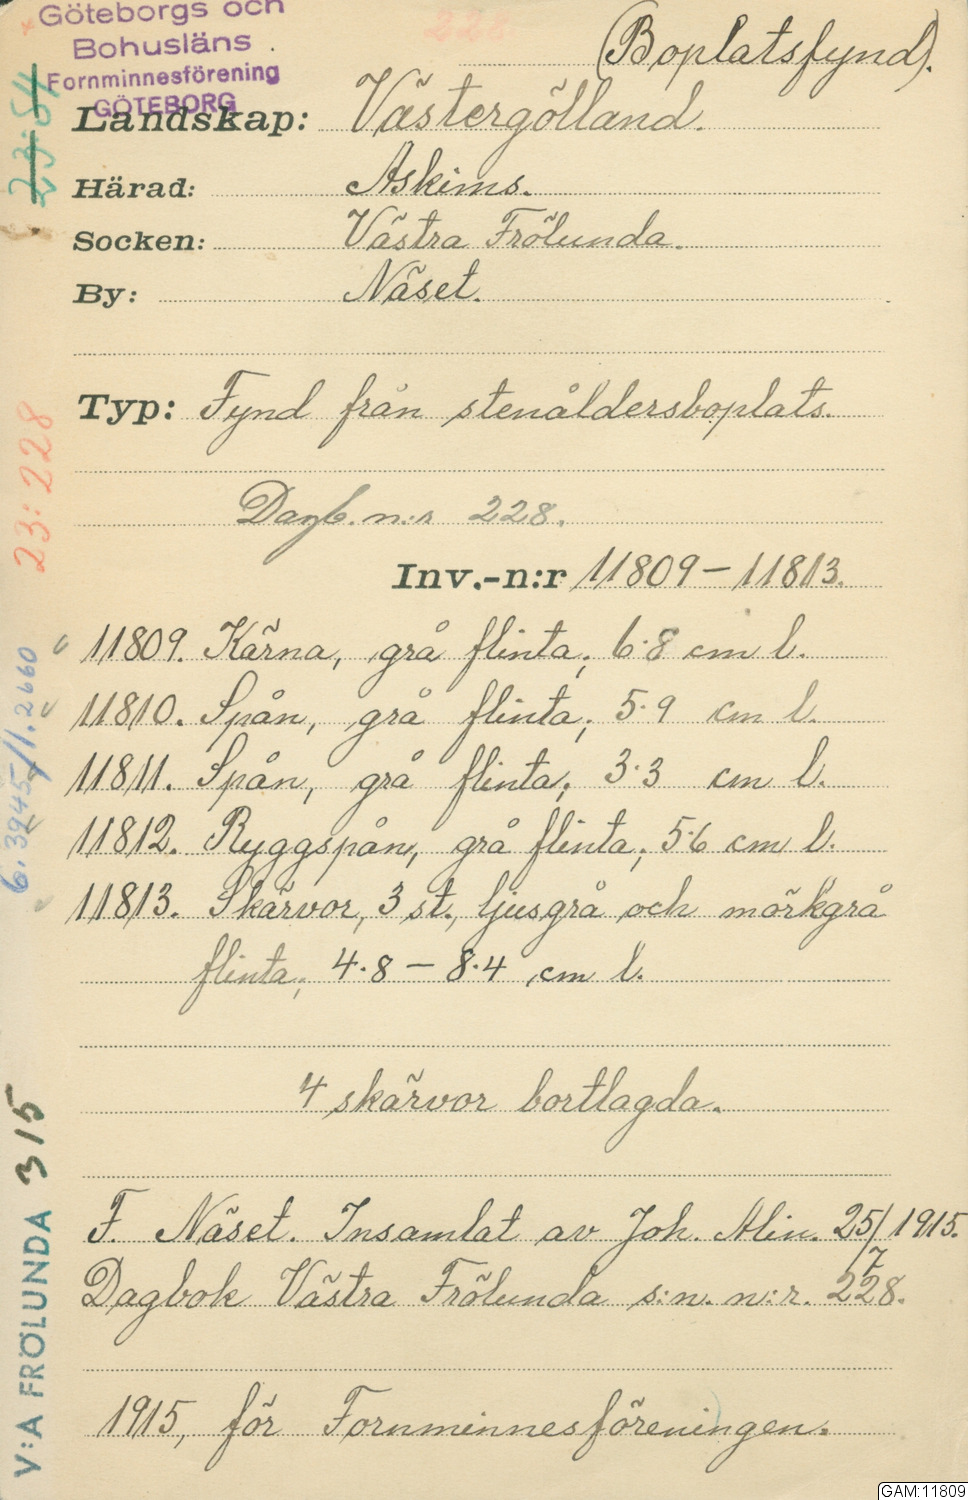 Göteborgs och
Bohusläns
Fornminnesförening
GÖTEBORG
228
(Boplatsfynd).
Landskap: Västergötland.
Härad: Askims.
Socken: Västra Frölunda.
By: Näset.
Typ: Fynd från stenåldersboplats.
Dagb. n:r 228.
Inv.-n:r 11809 – 11813.
11809. Kärna, grå flinta; 6.8 cm l.
11810. Spån, grå flinta; 5.9 cm l.
11811. Spån, grå flinta; 3.3 cm l.
11812. Ryggspån, grå flinta; 5.6 cm l.
11813. Skärvor, 3 st., ljusgrå och mörkgrå
flinta; 4.8 – 8.4 cm l.
4 skärvor bortlagda.
F. Näset. Insamlat av Joh. Alin. 25/7 1915.
Dagbok Västra Frölunda s:n. n:r. 228.
1915, för Fornminnesföreningen.
23:54
23:228
6.3945/1.2660
V:A FRÖLUNDA 315
GAM:11809